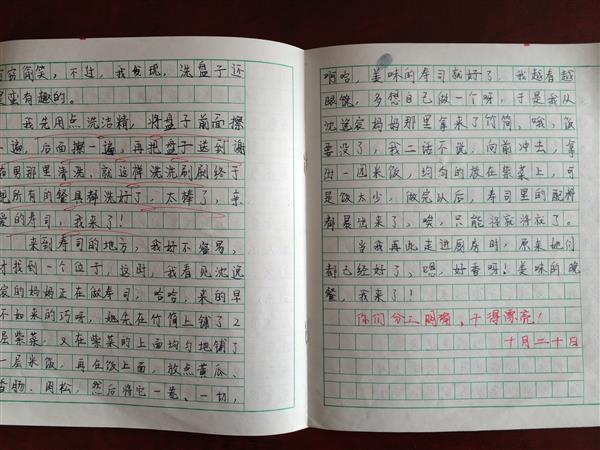 窃窃偷笑，不过，我发现，洗盘子还
是蛮有趣的。
我先用点洗洁精，将盘子前面擦
一遍，后面擦一遍，再把盘子送到谢
若用那里清洗，就这样洗洗刷刷终于
把所有的餐具都洗好了，太棒了，亲
爱的寿司，我来了！
来到寿司的地方，我好不容易，
才找到一个位子，这时，我看见沈逸
宸的妈妈正在做寿司，哈哈，来的早
不如来的巧呀，她先在竹筒上铺了2
层紫菜，又在紫菜的上面均匀地铺了
一层米饭，再在饭上面，放点黄瓜、
香肠、肉松，然后将它一卷、一切，
啊哈，美味的寿司就好了，我越看越
眼馋，多想自己做一个呀，于是我从
沈逸宸妈妈那里拿来了竹筒，哦，饭
要没了，我二话不说，向前冲去，拿
出一团米饭，均匀的放在紫菜上，可
是饭太少，做完以后，寿司里的配料
都晨出来了，唉，只能将就将就了。
当我再此走进厨房时，原来她们
都已经好了，嗯，好香呀！美味的晚
餐，我来了！
你们分工明确，干得漂亮！
十月二十日